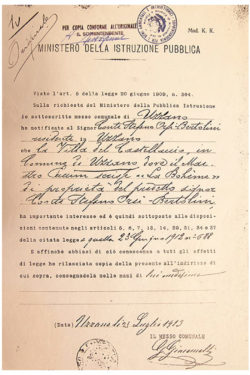 PER COPIA CONFORME ALL'ORIGINALE
IL SOPRINTENDENTE
Mod. K. K.
MINISTERO DELLA ISTRUZIONE PUBBLICA
Visto l'art. 5 della legge 20 giugno 1909, n. 364.
Sulla richiesta del Ministero della Pubblica Istruzione
io sottoscritto messo comunale di Uzzano
ho notificato al Signor Conte Stefano Orsi-Bertolini
residente in Uzzano
che la Villa del Castellaccio, in
Comune di Uzzano dove il Mae-
stro Puccini scrisse "La Bohème"
di proprietà del predetto signor
Conte Stefano Orsi-Bertolini
ha importante interesse ed è quindi sottoposta alle disposi-
zioni contenute negli articoli 5, 6, 7, 13, 14, 29, 31, 34 e 37
della citata legge e quella 23 Giugno 1912 n. 688
E affinchè abbiasi di ciò conoscenza a tutti gli effetti
di legge ho rilasciato copia della presente all'indirizzo di
cui sopra, consegnandola nelle mani di
(Data) Uzzano li 21 Luglio 1913
IL MESSO COMUNALE
G. Giacomelli